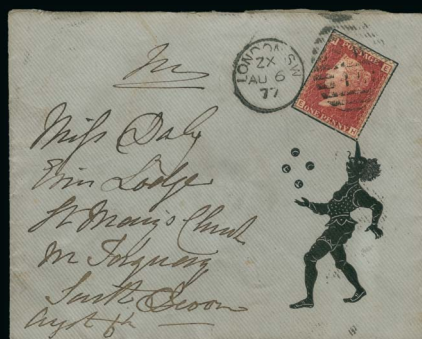 LONDON. S.W
ZX
AU 6
77
POSTAGE
ONE PENNY
Miss Daly
Erin Lodge
St Mary's Church
Nr Torquay
South Devon
Augst 6th